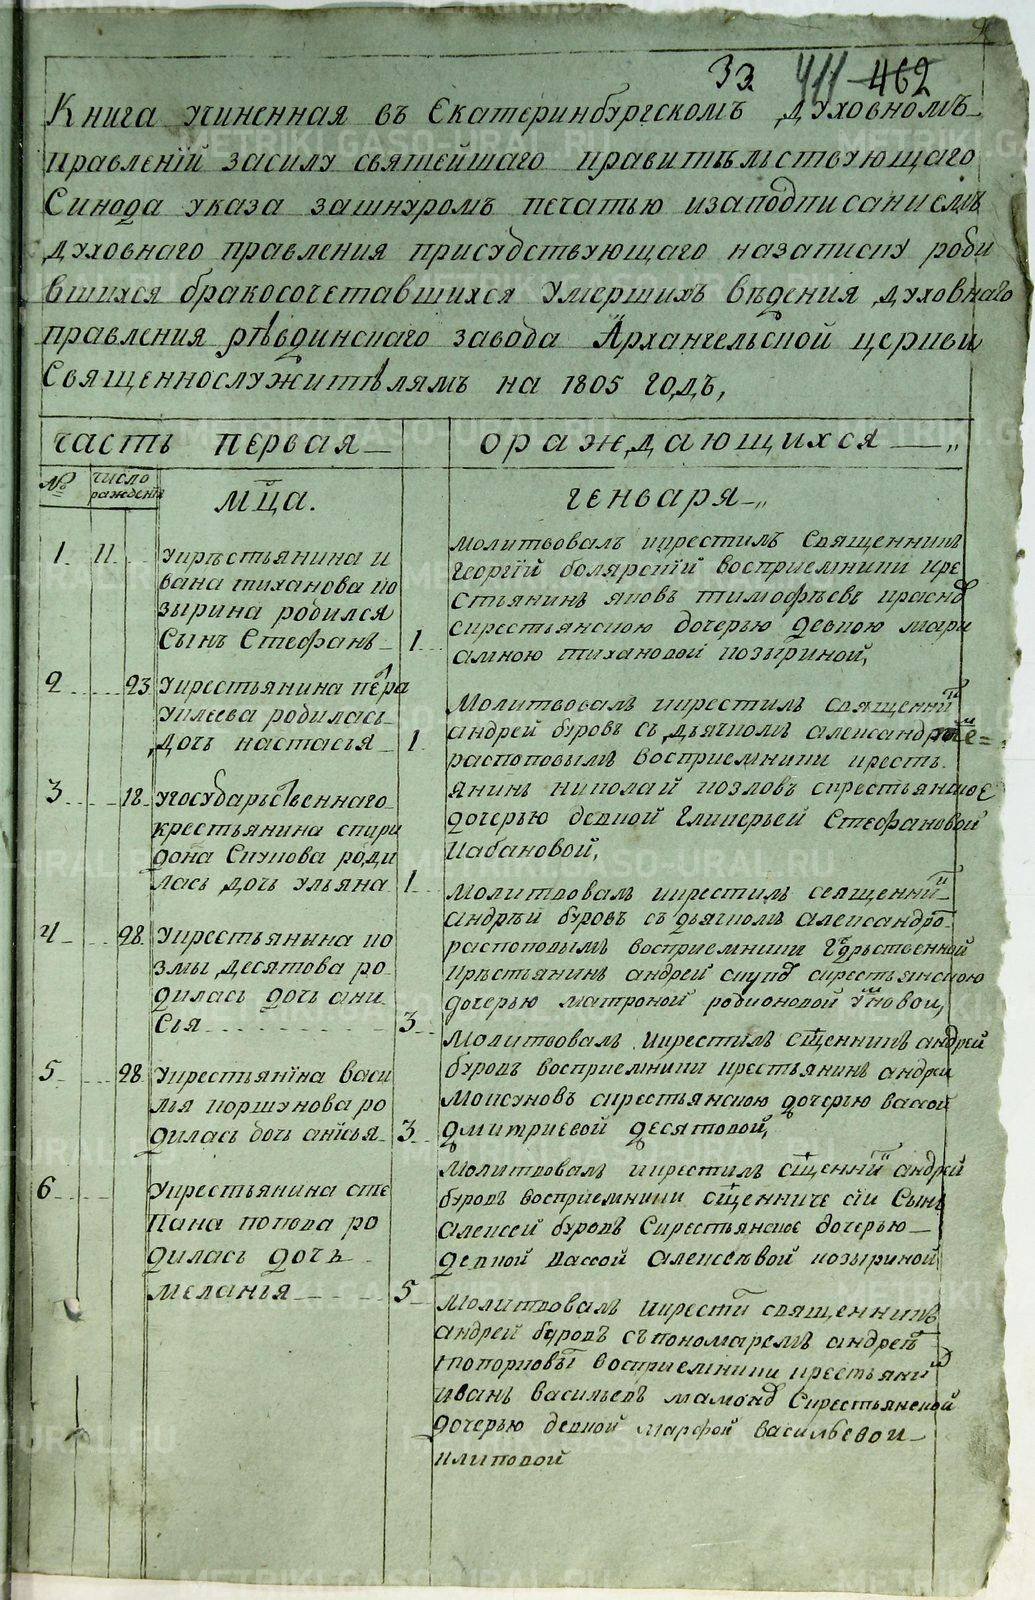 33. 411 462
Книга учиненная въ Екатеринбургскомъ духовномъ
правленiй засилу святейшаго правительствующаго
Синода указа зашнуромъ печатью изаподписаниемъ
духовнаго правления присудствующаго назаписку роди
вшихся бракосочетавшихся умершихъ въдения духовнаго
правления ръвдинскаго завода Архангельской церкви
Священнослужителямъ на 1805 годъ,
часть первая
ораждающихся
№ число раждения
мца.
генваря
1 11 Укрестьянина и
вана тиханова ко
зырина родился
Сынъ Стефанъ 1
молитвовалъ икрестилъ Священникъ
Георгiй болярскiй восприемники кре
стьянинъ яковъ тимофъевъ
скрестьянскою дочерью девкою мари
амною тихановой козыриной,
2 23 Укрестьянина петра
родилась
дочь настасья 1
Молитвовалъ икрестилъ священникъ
андрей буровъ съ дьячкомъ александромъ
распоповымъ восприемники кресть
янинъ николай козловъ скрестьянскою
дочерью девкой гликерьей Стефановой
Кабановой,
3 18 угосударственнаго
крестьянина спири
дона Скукова роди
лась дочь ульяна 1
Молитвовалъ икрестилъ священникъ
андрей буровъ съ дьячкомъ александро
распоповымъ восприемники
крестьянинъ андрей скрестьянскою
дочерью матроной родионовой
4 28 Укрестьянина ко
змы десятова ро
дилась дочь ани
сья 3
Молитвовалъ икрестилъ сщенникъ андрей
буровъ восприемники крестьянинъ андрей
Моксуновъ скрестьянскою дочерью васой
дмитриевой десятовой,
5 28 Укрестьянiна васи
лья коршунова ро
дилась дочь анисья 3
Молитвовалъ икрестилъ сщенникъ андрей
буровъ восприемники сщенниче скiи Сынъ
Алексей буровъ Скрестьянскою дочерью
девкой вассой алексъевой козыриной
6 Укрестьянина сте
пана попова ро
дилась дочь
меланiя 5
Молитвовалъ икрести священникъ
андрей буровъ съпономаремъ андреемъ
топорковы восприемники крестьяни
иванъ васильевъ Скрестьянской
дочерью девкой марфой васильевои
климовой